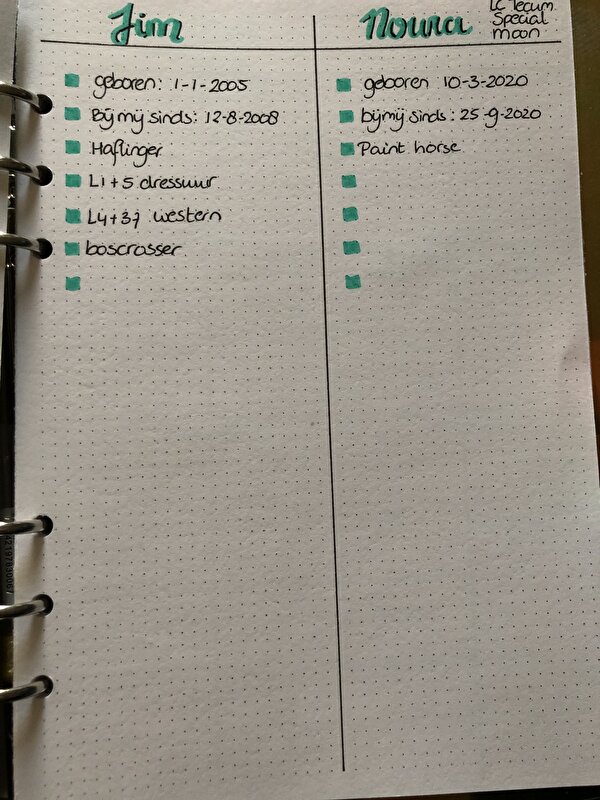 Jim
geboren: 1-1-2005
Bij mij sinds: 12-8-2008
Haflinger
L1+5 dressuur
L4+37 western
boscrosser
Noura
LC Tecum
Special
moon
geboren 10-3-2020
bij mij sinds: 25-9-2020
Paint horse
4219783006